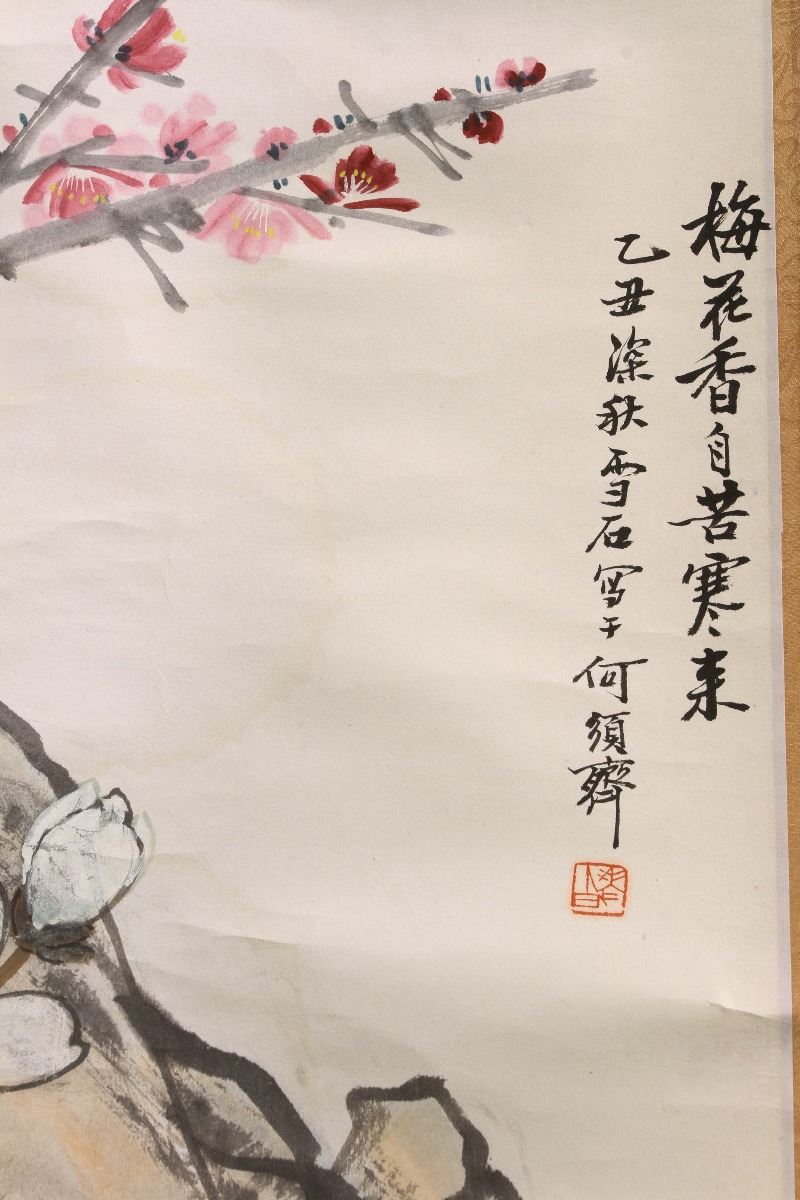 梅花香自苦寒来
乙丑深秋雪石写于何须斋